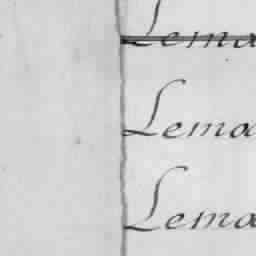 Lema
Lema
Lema